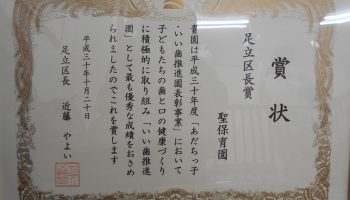 賞状
足立区長賞
聖保育園
貴園は平成三十年度「あだちっ子
・いい歯推進園表彰事業」において
子どもたちの歯と口の健康づくり
に積極的に取り組み「いい歯推進
園」として最も優秀な成績をおさめ
られましたのでこれを賞します
平成三十年十月二十日
足立区長 近藤 やよい